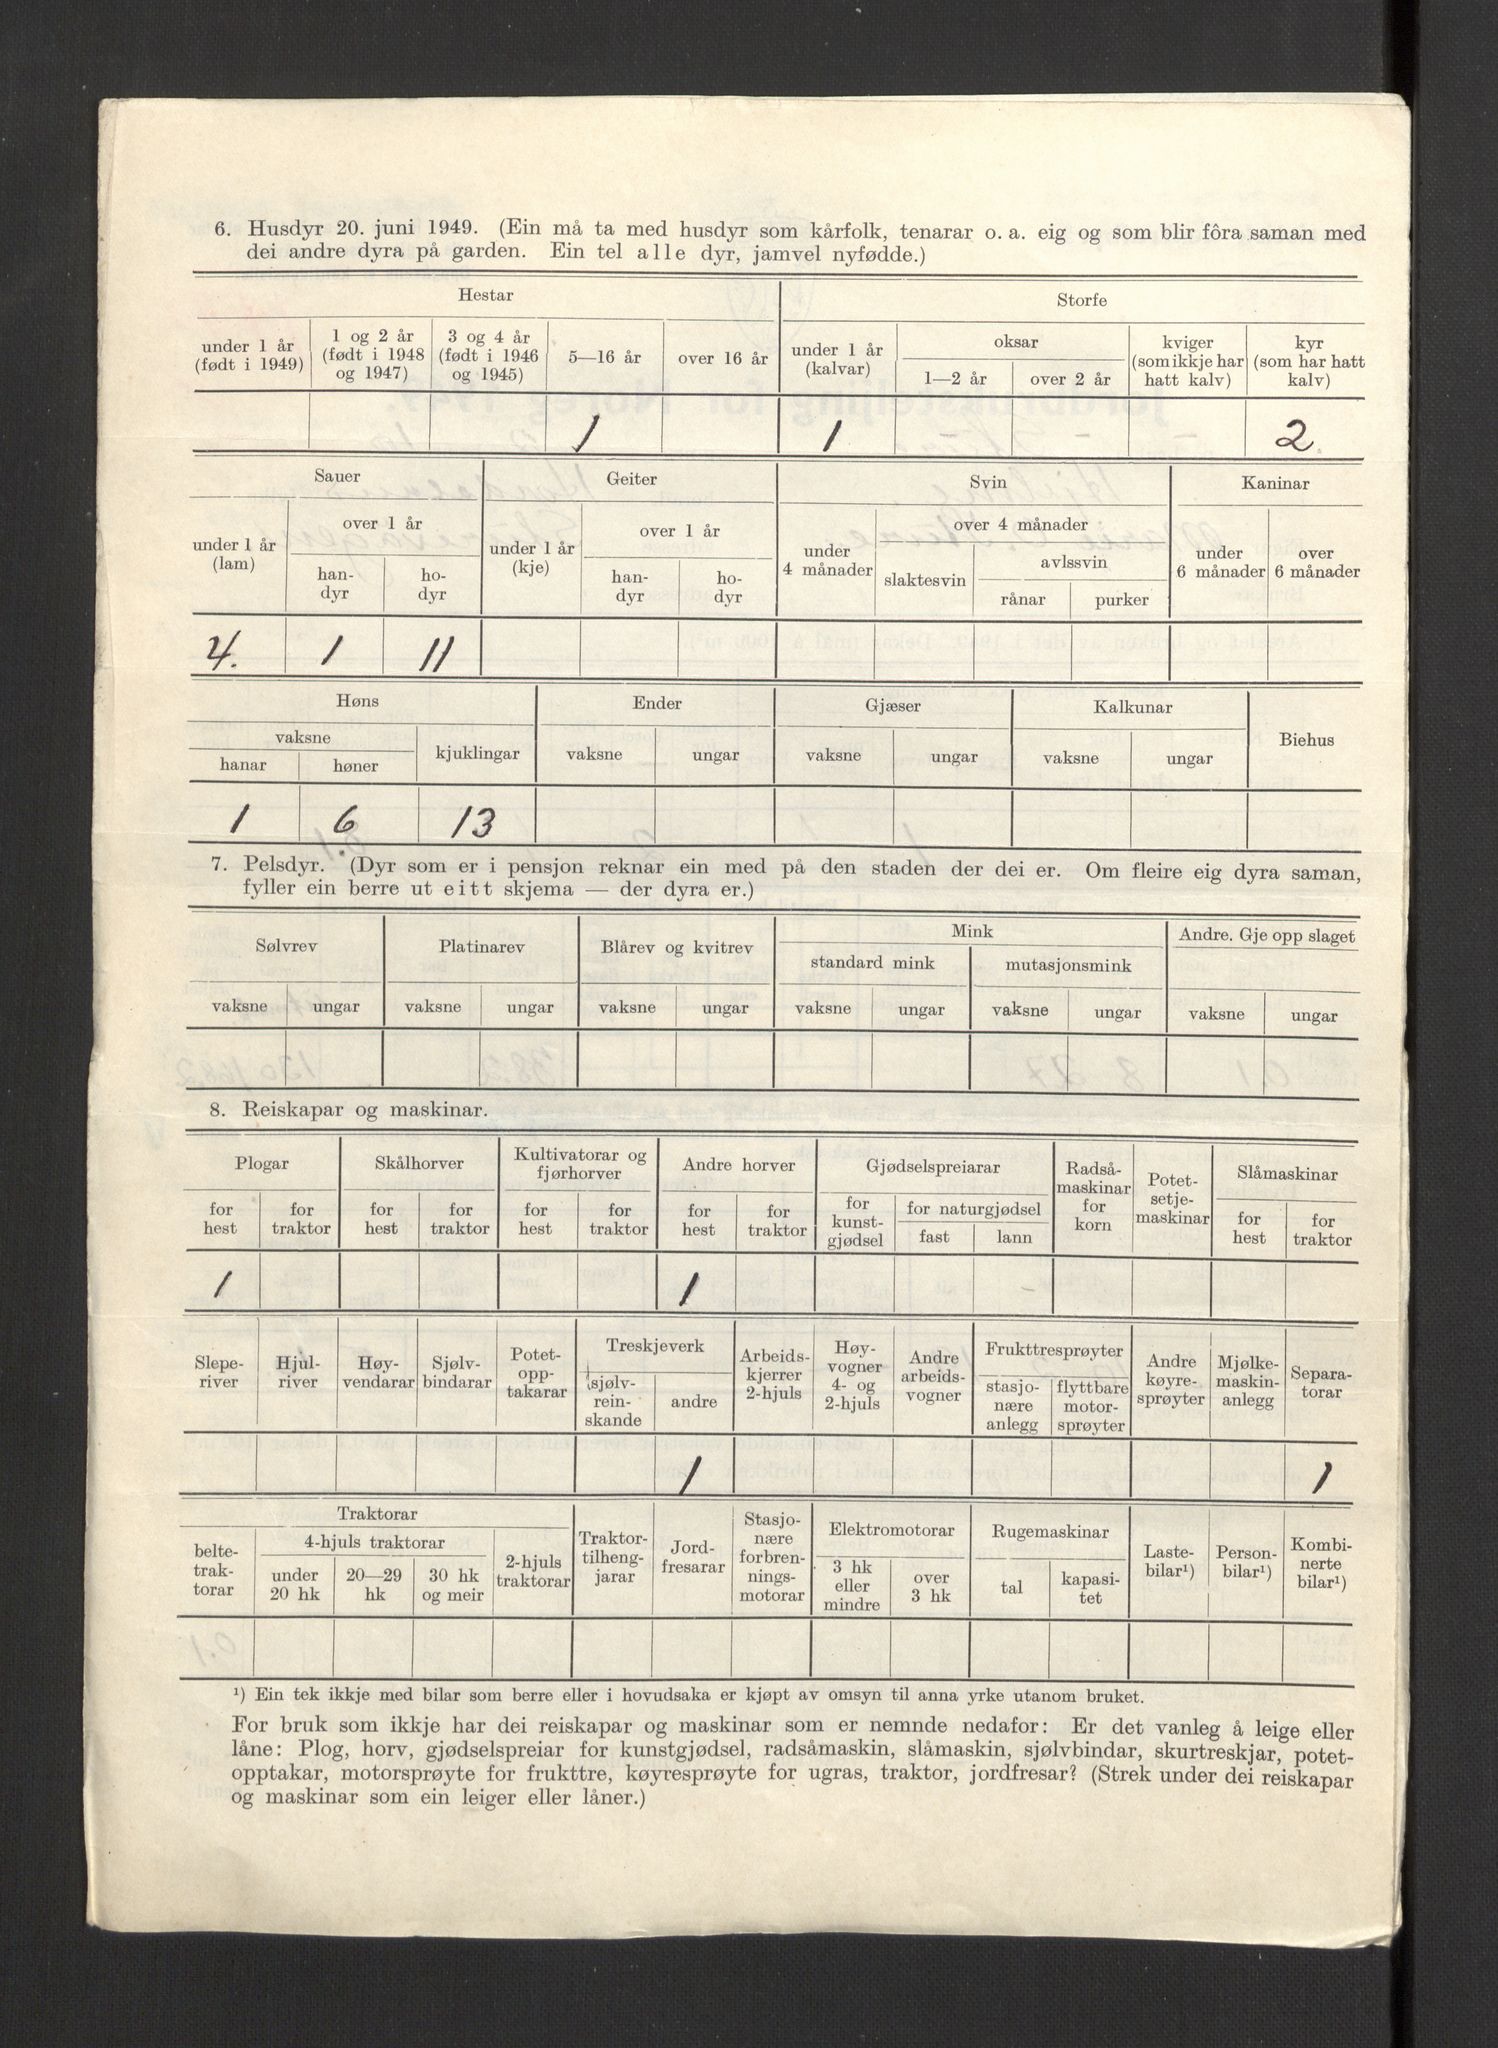 6. Husdyr 20. juni 1949. (Ein må ta med husdyr som kårfolk, tenarar o. a. eig og som blir fôra saman med
dei andre dyra på garden. Ein tel alle dyr, jamvel nyfødde.)
Hestar Storfe
under 1 år (født i 1949) 1 og 2 år (født i 1948 og 1947) 3 og 4 år (født i 1946 og 1945) 5—16 år over 16 år under 1 år (kalvar) oksar 1—2 år over 2 år kviger (som ikkje har hatt kalv) kyr (som har hatt kalv)
1 1 2.
Sauer Geiter Svin Kaninar
under 1 år (lam) over 1 år handyr hodyr under 1 år (kje) over 1 år handyr hodyr under 4 månader over 4 månader slaktesvin avlssvin rånar purker under 6 månader over 6 månader
4. 1 11
Høns Ender Gjæser Kalkunar Biehus
vaksne kjuklingar vaksne ungar vaksne ungar vaksne ungar
hanar høner
1 6 13
7. Pelsdyr. (Dyr som er i pensjon reknar ein med på den staden der dei er. Om fleire eig dyra saman,
fyller ein berre ut eitt skjema — der dyra er.)
Sølvrev Platinarev Blårev og kvitrev Mink Andre. Gje opp slaget
standard mink mutasjonsmink
vaksne ungar vaksne ungar vaksne ungar vaksne ungar vaksne ungar vaksne ungar
8. Reiskapar og maskinar.
Plogar Skålhorver Kultivatorar og fjørhorver Andre horver Gjødselspreiarar Radsåmaskinar for korn Potetsetjemaskinar Slåmaskinar
for hest for traktor for hest for traktor for hest for traktor for hest for traktor for kunstgjødsel for naturgjødsel fast lann for hest for traktor
1 1
Sleperiver Hjulriver Høyvendarar Sjølvbindarar Potetopptakarar Treskjeverk sjølvreinskande andre Arbeidskjerrer 2-hjuls Høyvogner 4- og 2-hjuls Andre arbeidsvogner Frukttresprøyter stasjonære anlegg flyttbare motorsprøyter Andre køyresprøyter Mjølkemaskinanlegg Separatorar
1 1
Traktorar
beltetraktorar 4-hjuls traktorar under 20 hk 20—29 hk 30 hk og meir 2-hjuls traktorar Traktortilhengjarar Jordfresarar Stasjonære forbrenningsmotorar Elektromotorar 3 hk eller mindre over 3 hk Rugemaskinar tal kapasitet Lastebilar¹) Personbilar¹) Kombinerte bilar¹)
¹) Ein tek ikkje med bilar som berre eller i hovudsaka er kjøpt av omsyn til anna yrke utanom bruket.
For bruk som ikkje har dei reiskapar og maskinar som er nemnde nedafor: Er det vanleg å leige eller
låne: Plog, horv, gjødselspreiar for kunstgjødsel, radsåmaskin, slåmaskin, sjølvbindar, skurtreskjar, potet-
opptakar, motorsprøyte for frukttre, køyresprøyte for ugras, traktor, jordfresar? (Strek under dei reiskapar
og maskinar som ein leiger eller låner.)